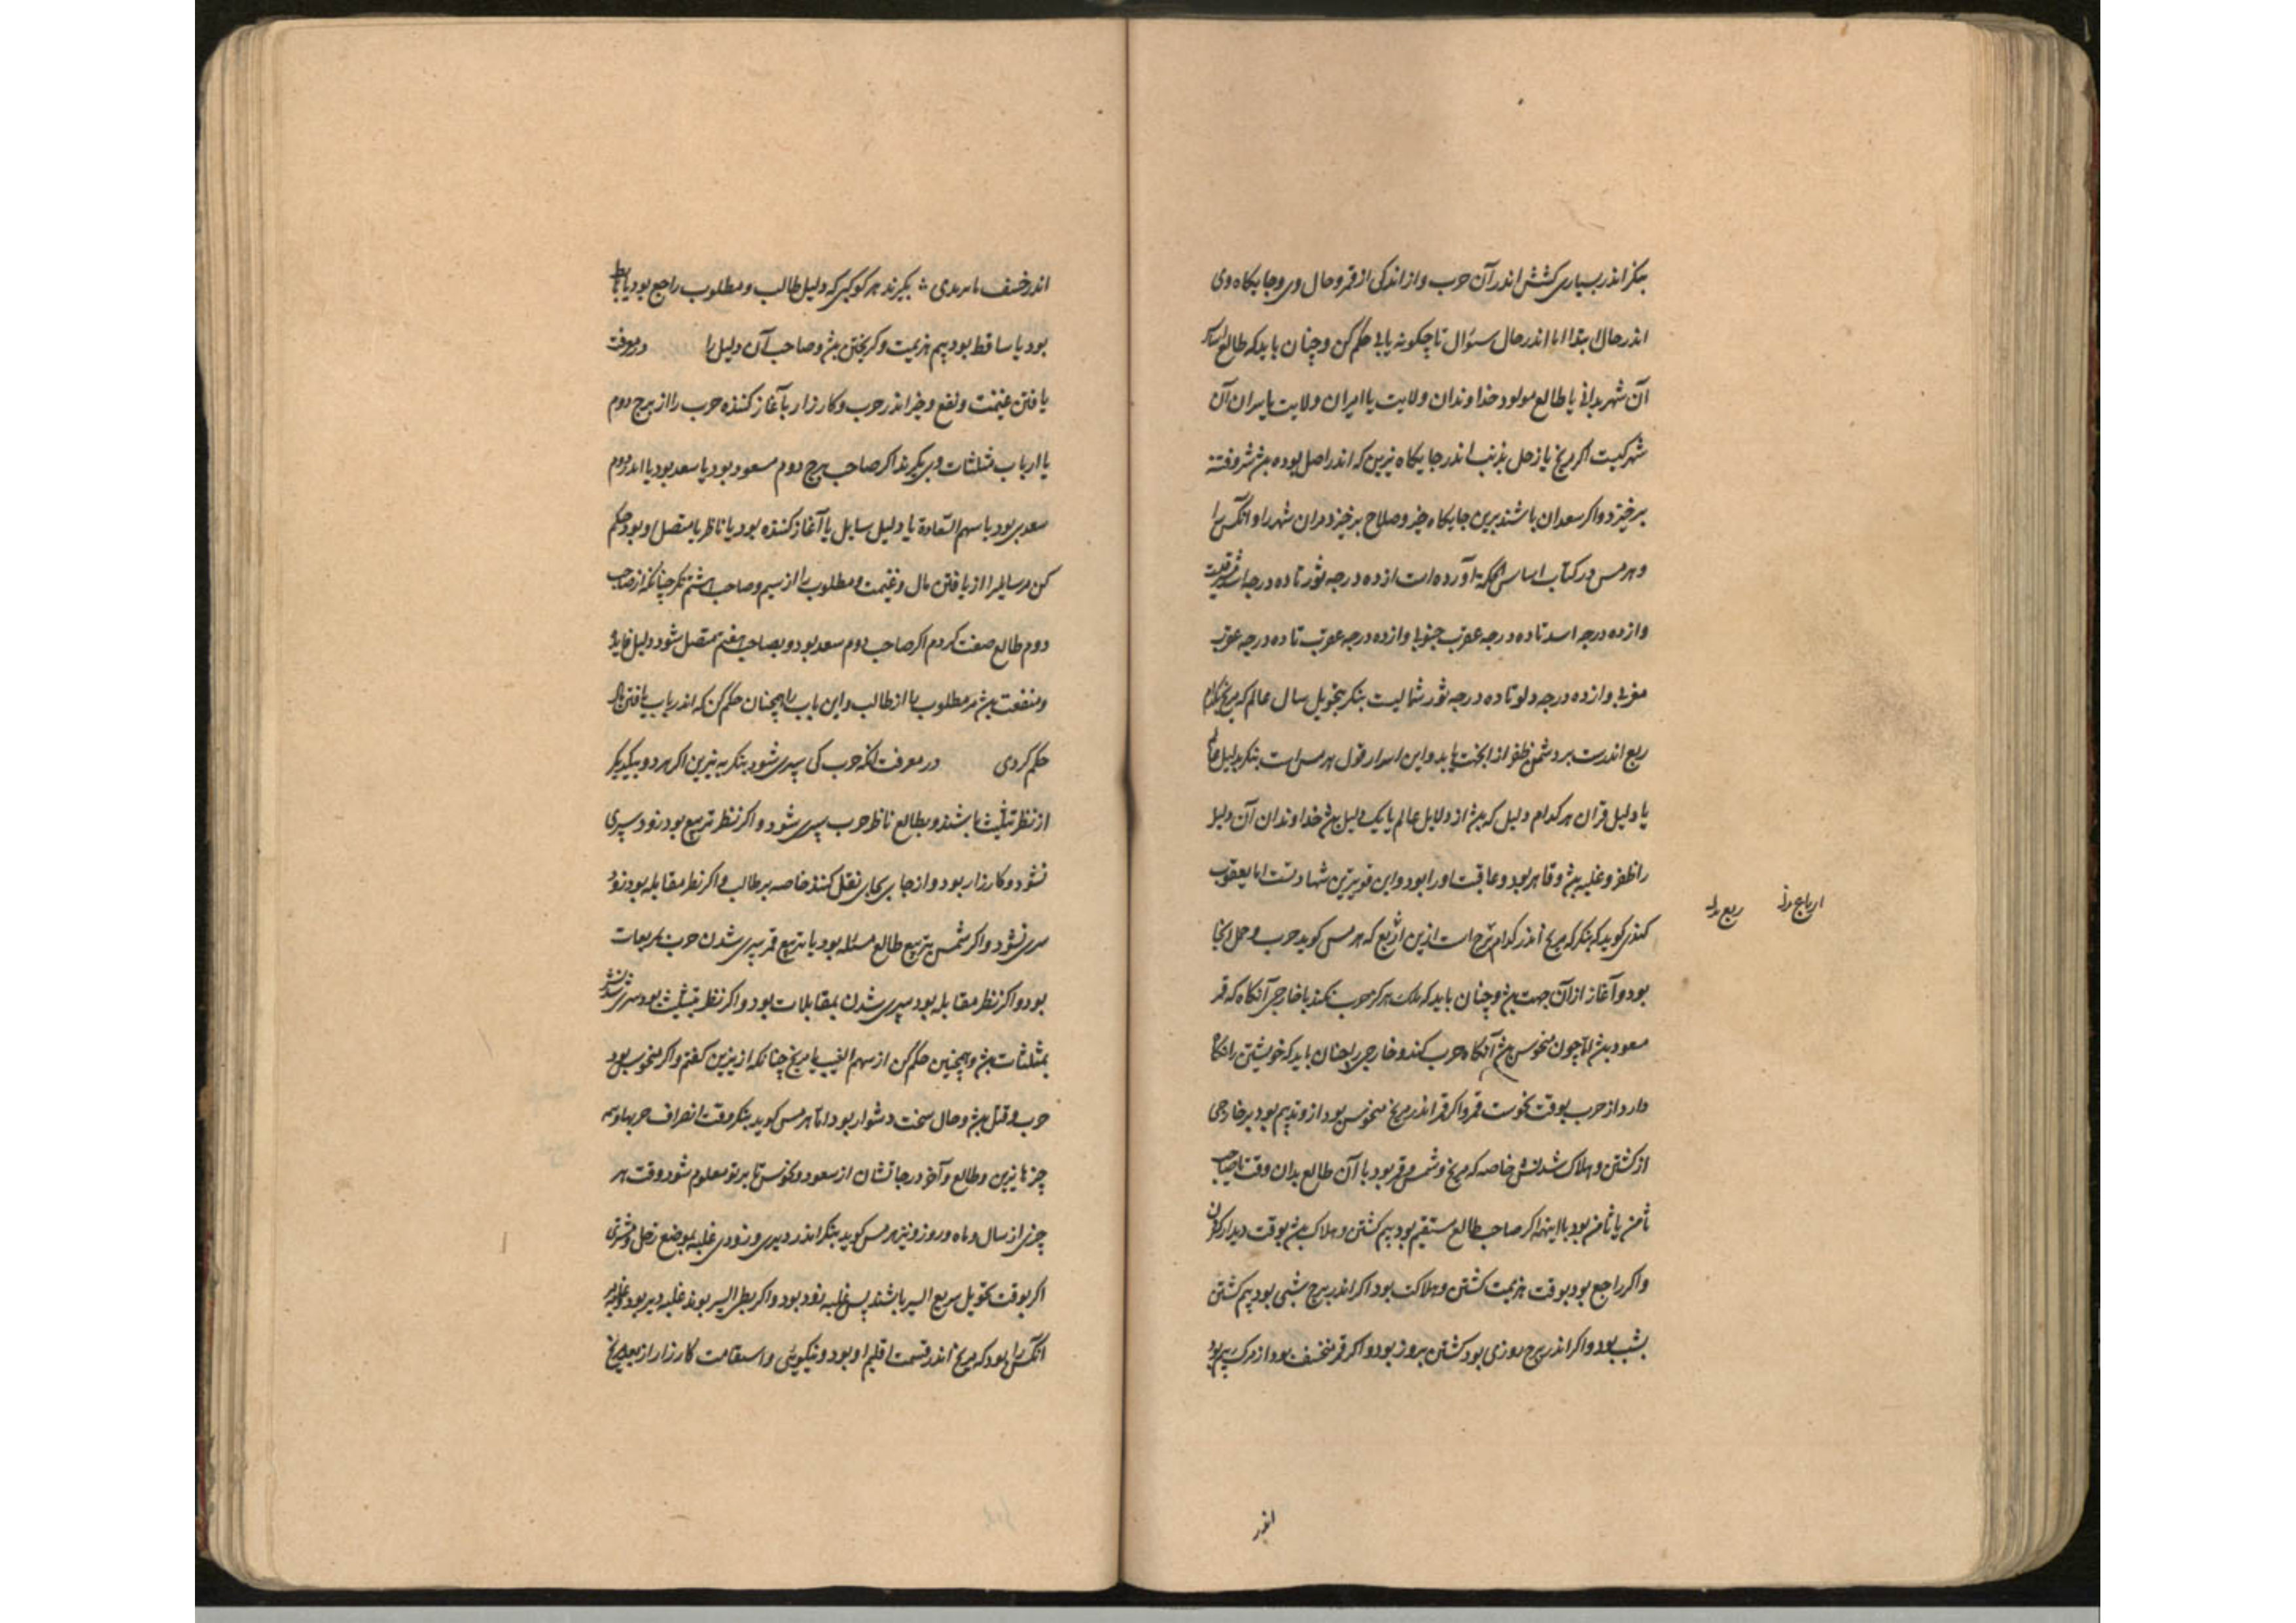 بنکر اندر بسیاری کشش اندر آن حرب و از اندکی از قمر و حال وی و جایکاه وی
اندر حال ابتدا اما اندر حال سئوال تا چکونه یابی حکم کن و چنان باید که طالع
آن شهر بدانی یا طالع مولود خداوندان ولایت یا امیران ولایت یا سران آن
شهر کیست اکر مریخ یا زحل یا ذنب اندر جایکاه نیرین که اندر اصل بوده بش شر و فتنه
برخیزد و اکر سعدان باشند برین جایکاه خیر و صلاح برخیزد مران شهر را و انکس را
و هرمس در کتاب اساس الحکمة آورده است از ده درجه ثور تا ده درجه اسد
و از ده درجه اسد تا ده درجه عقرب جنوبی و از ده درجه عقرب تا ده درجه
مغربی و از ده درجه دلو تا ده درجه ثور شمالیست بنکر بتحویل سال عالم که مریخ بکدام
ربع اندرست بر دشمن ظفر از انجهت یابد و این اسرار قول هرمس است بنکر بدلیل
یا دلیل قران هر کدام دلیل که بش از دلایل عالم یا یک دلیل بش خداوندان آن دلیل
را ظفر و غلبه بش و قاهر بود و عاقبت او را بود و این قویترین شهادتست اما یعقوب
کندی کوید که بنکر که مریخ اندر کدام برج است ازین ارباع که هرمس کوید حرب و حمل آنجا
بود و آغاز از آن جهت بش و چنان باید که ملک هرکز حرب نکند با خارجی آنکاه که قمر
مسعود بش الا چون منحوس بش آنکاه حرب کند و خارجی را چنان باید که خویشتن را نکاه
دارد از حرب بوقت نحوست قمر و اکر قمر اندر مریخ منحوس بود ازو بیم بود بر خارجی
از کشتن و هلاک شدنش خاصه که مریخ و شمس و قمر بود با آن طالع بدان وقت یا صاحب
ثامن یا ثامن بود با اینهمه اکر صاحب طالع مستقیم بود بیم کشتن و هلاک بش بوقت دیدار کردن
و اکر راجع بود بوقت هزیمت کشتن و هلاکت بود اکر اندر برج شبی بود بیم کشتن
بشب بود و اکر اندر برج روزی بود کشتن بروز بود و اکر قمر منخسف بود از مرک بیم بود
ارباع
ربع
اندر
اندر خسف بکیرند هر کوکبی که دلیل طالب و مطلوب راجع بود یا
بود یا ساقط بود بیم هزیمت و کریختن بش و صاحب آن دلیل را در معرفت
یافتن غنیمت و نفع و خیر اندر حرب و کارزار با آغاز کننده حرب را از برج دوم
یا ارباب مثلثات وی بکیرند اکر صاحب برج دوم مسعود بود یا سعد بود یا اندر دوم
سعدی بود یا سهم السّعادة یا دلیل سایل یا آغاز کننده بود یا ناظر یا متصل او بود حکم
کن مر سایل را از یافتن مال و غنیمت و مطلوب را از سیم و صاحب هشتم نکر چنانکه از صاحب
دوم طالع صفت کردم اکر صاحب دوم سعد بود و بصاحب هفتم متصل شود دلیل فایده
و منفعت بش مر مطلوب را از طالب و این باب را همچنان حکم کن که اندر باب یافتن مال
حکم کردی در معرفت آنکه حرب کی سپری شود بنکر به نیرین اکر هر دو بیکدیکر
از نظر تثلیث باشند و بطالع ناظر حرب سپری شود و اکر نظر تربیع بود زود سپری
نشود و کارزار بود و از جای بجای نقل کنند خاصه بر طالب و اکر نظر مقابله بود زود
سپری نشود و اکر شمس بتربیع طالع مسئله بود یا بتربیع قمر سپری شدن حرب بتربیعات
بود و اکر نظر مقابله بود سپری شدن بمقابلات بود و اکر نظر تثلیث بود سپری شدنش
بمثلثات بش و همچنین حکم کن از سهم الغیب یا مریخ چنانکه از نیرین کفتم و اکر منحوس بود
حرب و قتل بش و حال سخت دشوار بود اما هرمس کوید بنکر وقت انصراف حربها و
چیزها نیرین و طالع و آخر درجاتشان از سعود و نحوس تا بر تو معلوم شود وقت هر
چیزی از سال و ماه و روز و نیز هرمس کوید بنکر اندر دیری و زودی غلبه بموضع زحل و مشتری
اکر بوقت تحویل سریع السیر باشند پس غلبه زود بود و اکر بطی السیر بوند غلبه دیر بود و غلبه
آنکس را بود که مریخ اندر قسمت اقلیم او بود و نیکویی و استقامت کارزار از